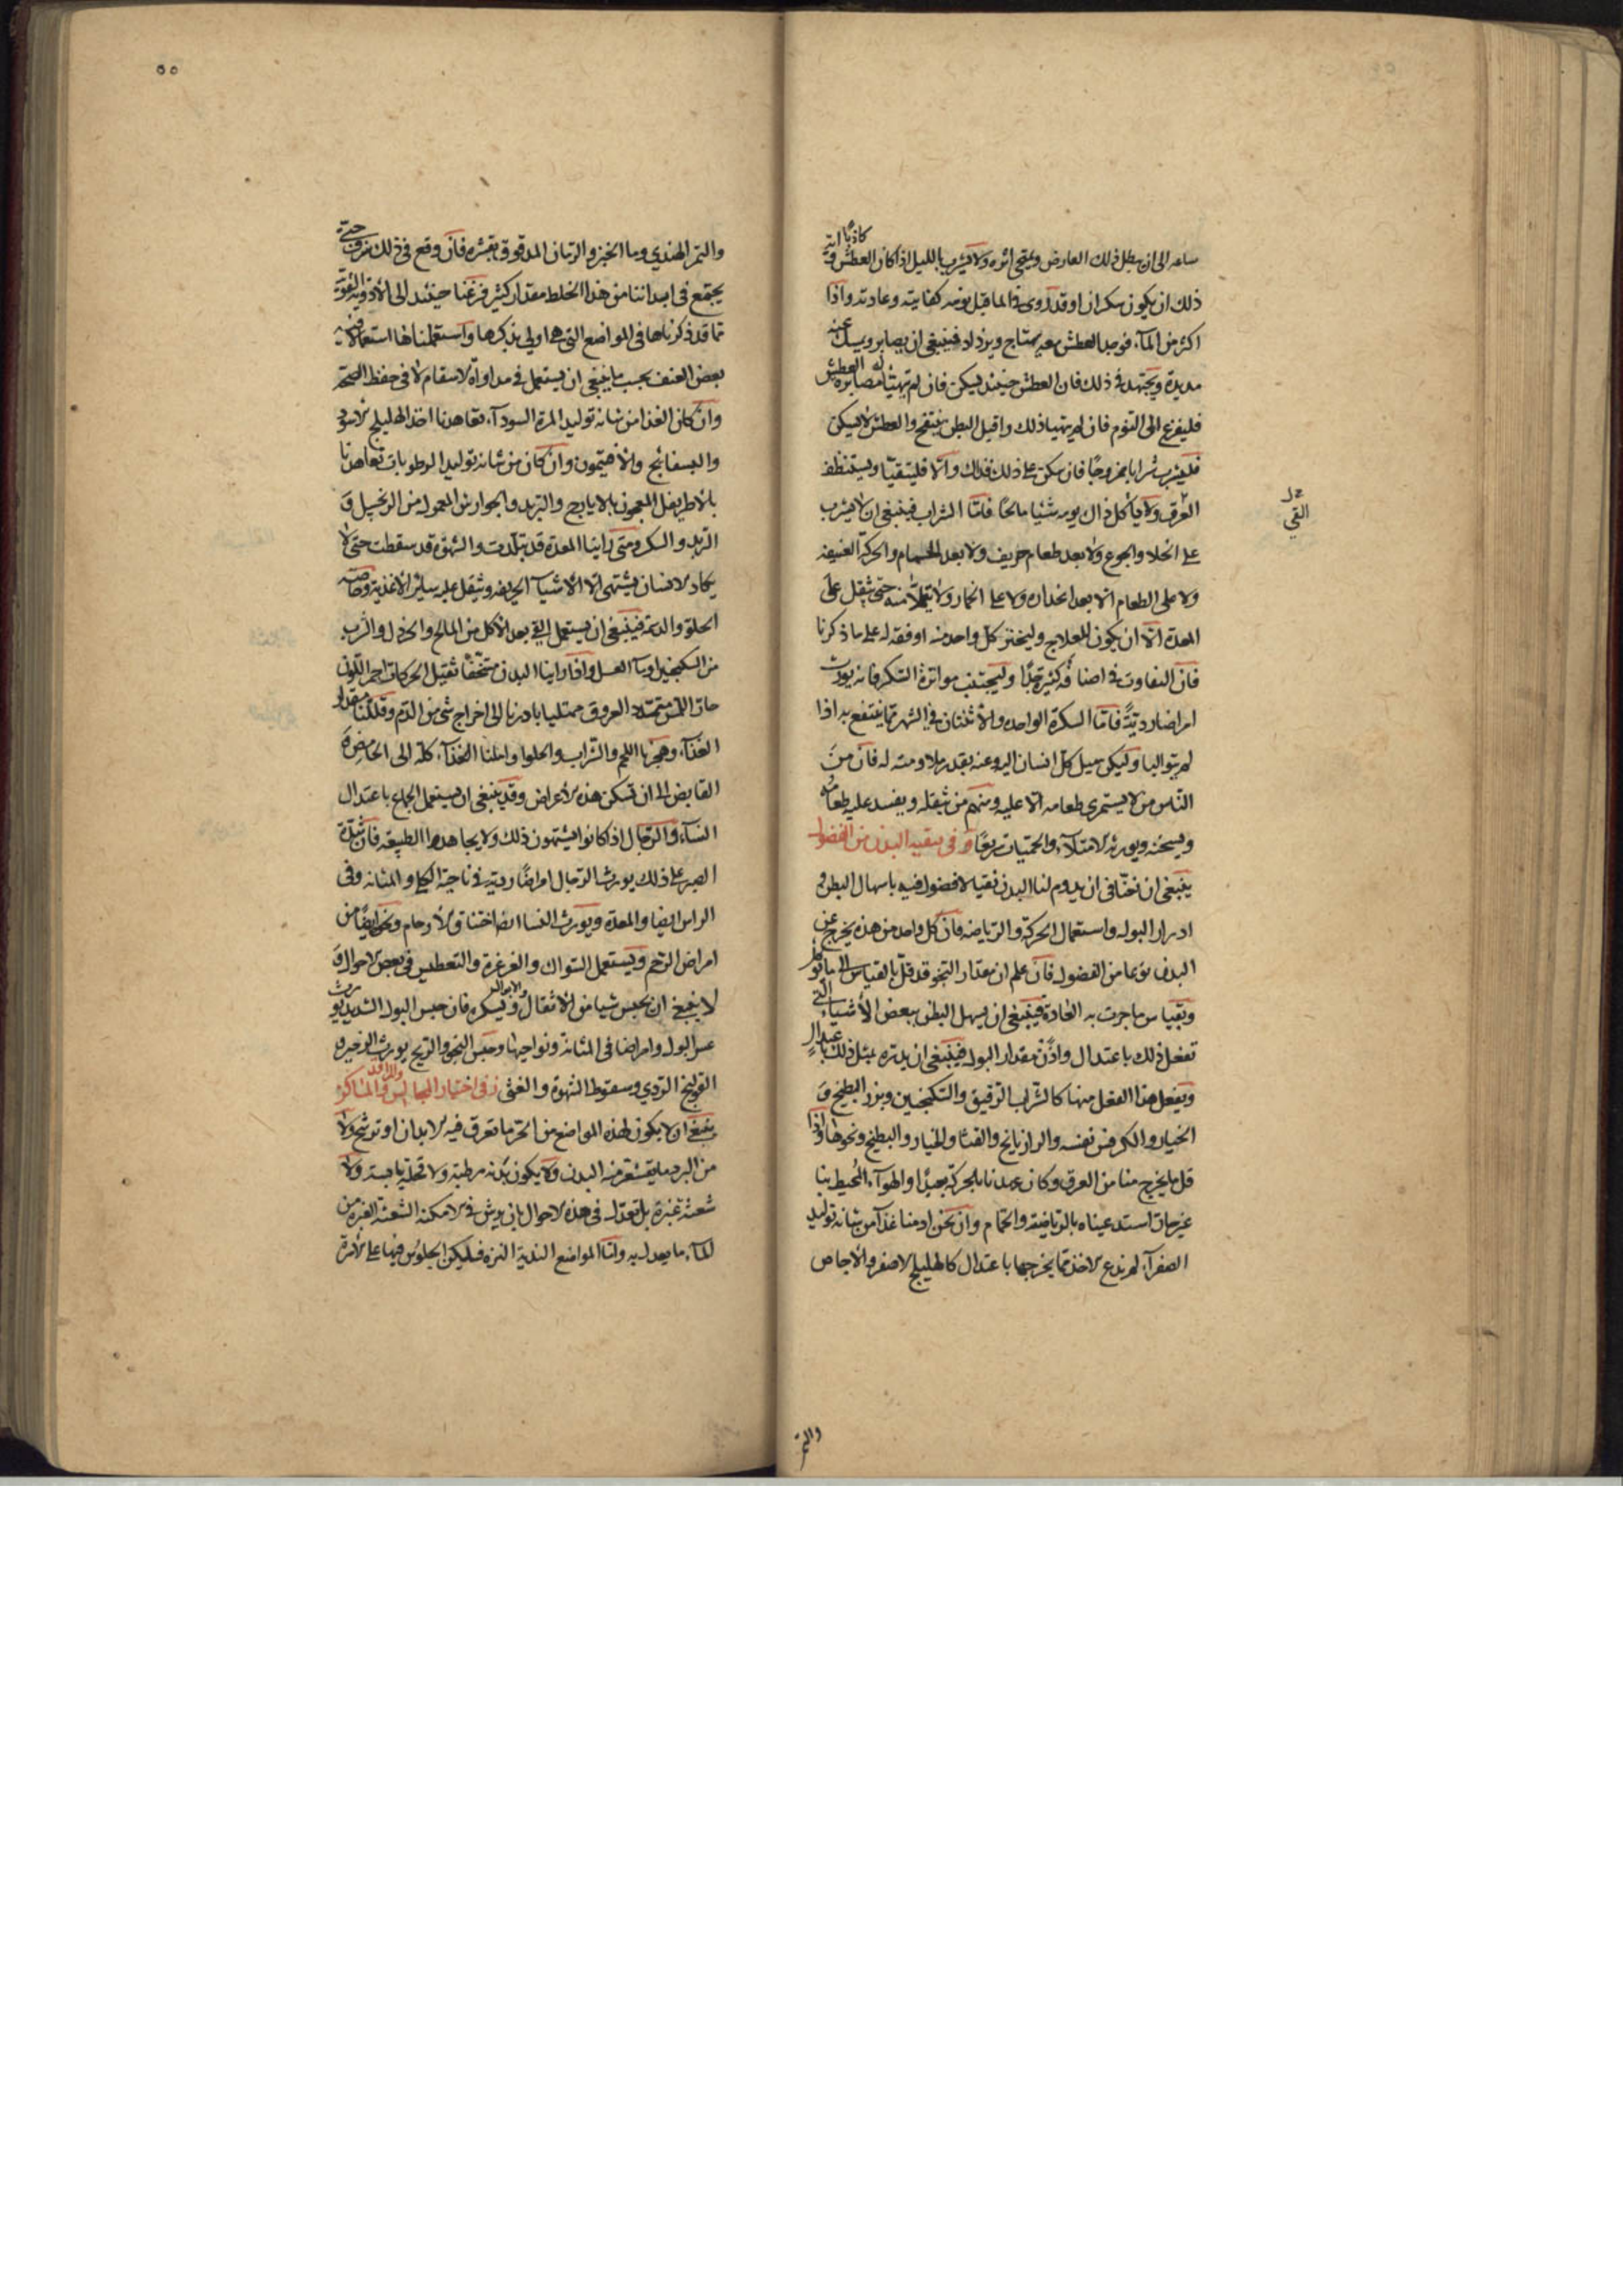 ساعه الى ان يبطل ذلك العارض ويمحى اثره ولا يشرب بالليل اذا كان العطش كاذبا واية
ذلك ان يكون سكران او قد روى من الماء قبل نومه كفايته وعادته واذا
اكثر من الماء فوجد العطش بعد يهتاج ويزداد فينبغى ان يصابر ويمسك عنه
مديدة ويجتهد فى ذلك فان العطش حينئذ يسكن فان لم يتهيا له مصابرة العطش
فليفزع الى النوم فان لم يتهيا ذلك واقبل البطن ينتفخ والعطش لا يسكن
فليشرب شرابا ممزوجا فان سكن على ذلك فذاك والا فليتقيا ويستنظف
العرق ولا ياكل ذلك يومه شيئا مالحا فاما الشراب فينبغى ان لا يشرب
على الخلاء والجوع ولا بعد طعام حريف ولا بعد الحمام والحركة العنيفه
ولا على الطعام الا بعد انحداره ولا على الخمار ولا يتملا منه حتى يثقل على
المعدة الا ان يكون للعلاج وليختر كل واحد منه اوفقه له على ما ذكرنا
فان التفاوت فى اصنافه كثيرة جدا وليجتنب مواترة السكر فانه يورث
امراضا ردية فاما السكرة الواحدة والاثنتان فى الشهر فما ينتفع به اذا
لم يتواليا وليكن ميل كل انسان اليه وعنه بقدر ملاومته له فان من
الناس من لا يستمرى طعامه الا عليه ومنهم من يثقله ويفسد عليه طعامه
ويسخنه ويورثه الامتلاء والحميات سريعا و فى تنقيه البدن من الفضول
ينبغى ان نختار فى ان يدوم لنا البدن نقيا لا فضول فيه باسهال البطن و
ادرار البول واستعمال الحركة والرياضه فان كل واحد من هذه يخرج عن
البدن نوعا من الفضول فان علم ان مقدار النجو قد قل بالقياس الى ما توكل
وبقياس ما جرت به العادة فينبغى ان يسهل البطن ببعض الاشياء التى
تفعل ذلك باعتدال واذن مقدار البول فينبغى ان يدره بمثل ذلك باعتدال
ويفعل هذا الفعل منها كالشراب الرقيق والسكنجبين وبزر البطيخ و
الخيار والكرفس نفسه والرازيانج والقثا والخيار والبطيخ ونحوها واذا
قل ما يخرج منا من العرق وكان عهدنا بالحركة بعيدا او الهواء المحيط بنا
غير حار استدعيناه بالرياضة والحمام وان نحن ادمنا غذا من شانه توليد
الصفراء لم ندع الاخذ مما يخرجها باعتدال كالهليلج الاصفر والاجاص
والتمر
القي
٥٥
والتمر الهندى وماء الخبز والرمان المدقوق بقشره فان وقع فى ذلك حتى
يجتمع فى ابداننا من هذا الخلط مقدار كثير فزعنا حينئذ الى الادوية القوية
مما قد ذكرناها فى المواضع التى هى اولى بذكرها واستعملناها استعمالا فيه
بعض العنف بحسب ما ينبغى ان يستعمل فى مداواة الاسقام لا فى حفظ الصحة
وان كان الغذا من شانه توليد المرة السوداء تعاهدنا اخذ الهليلج الاسود
والبسفائج والافتيمون وان كان من شانه توليد الرطوبات تعاهدنا
بالاطريفل المعجون بالايارج والتربد والجوارشن المعمول من الزنجبيل و
التربد والسكر ومتى راينا المعدة قد تبلدت والشهوة قد سقطت حتى لا
يكاد الانسان يشتهى الا الاشياء الحريفه ويثقل عليه ساير الاغذية وخاصه
الحلو والدسم فينبغى ان يستعمل القى بعد الاكل من المالح والخردل والشرب
من السكنجبين او ماء العسل واذا راينا البدن متخففا ثقيل الحركات احمر اللون
حار اللمس متمدد العروق ممتليا بادرنا الى اخراج شى من الدم وقللنا مقدار
الغذاء وهجرنا اللحم والشراب والحلوا واملنا الغذاء كله الى الحامضة
القابض الى ان تسكن هذه الاعراض وقد ينبغى ان يستعمل الجماع باعتدال
النساء والرجال اذا كانوا يشتهون ذلك ولا يجاهدوا الطبيعة فان شدة
الصبر على ذلك يورث الرجال امراضا ردية فى ناحية الكلى والمثانه وفى
الراس ايضا والمعدة ويورث النسا ايضا اختناق الارحام ونحو ايضا من
امراض الرحم ويستعمل السواك والغرغرة والتعطيس فى بعض الاحوال و
لا ينبغى ان يحبس شيا من الاثقال والابوال ويسكره فان حبس البول الشديد يورث
عسر البول وامراضا فى المثانة ونواحيها وحبس النجو والريح يورث الزحير و
القولنج الردى وسقوط الشهوة والغثى ز فى اختيار المجالس والمراقد والمساكن
ينبغى ان لا يكون لهذه المواضع من الحر ما تعرق فيه الابدان او ترشح ولا
من البرد ما يقشعر منه البدن ولا يكون ندية رطبة ولا قحلة يابسة ولا
شعثة غبرة بل تعدل فى هذه الاحوال بان يرش فى الامكنة الشعثة الغبرة من
الماء ما يعدل به واما المواضع الندية النزه فليكن الجلوس فيها على الاسرة